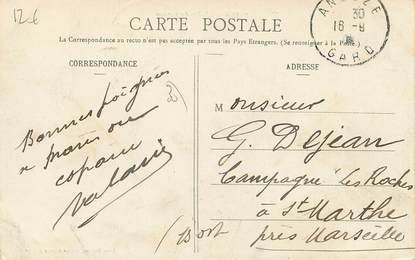 12€
CARTE POSTALE
La Correspondance au recto n'est pas acceptée par tous les Pays Etrangers. (Se renseigner à la Poste.)
CORRESPONDANCE
ADRESSE
30
16 - 9
GARD
Bonnes poignées
de main au
copain
Monsieur
G. Dejean
Campagne Les Roches
à St Marthe
près Marseille